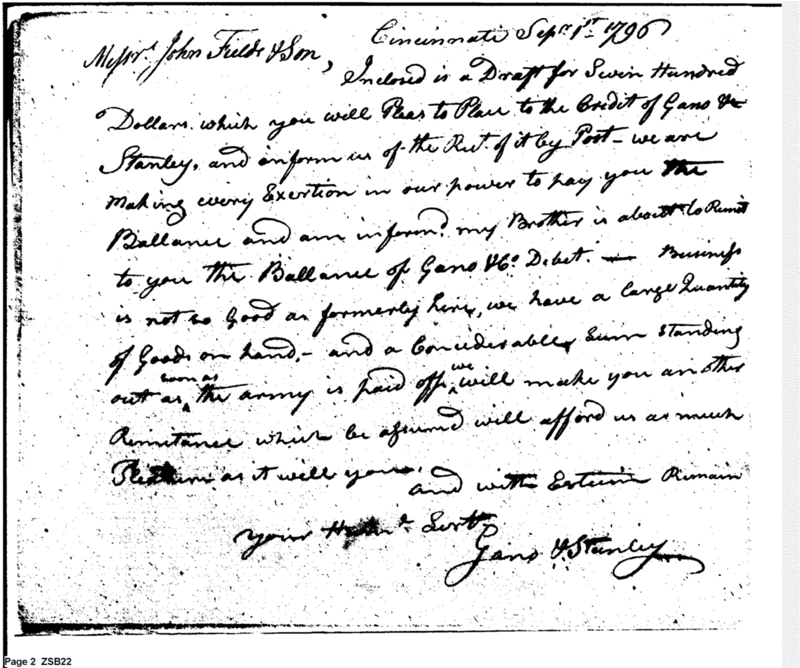 Cincinnati Sepr. 1st. 1796
Messrs. John Fields & Son,
Inclosed is a Draft for Sevin Hundred
Dollars. which you will Pleas to Place to the Credit of Gano &
Stanley, and inform us of the Rect. of it by Post - we are
making every Exertion in our power to pay you the
Ballance and am informd. my Brother is about to Remit
to you the Ballance of Gano & Co. Debet. — Business
is not so Good as formerly here, we have a large Quantity
of Goods on hand, - and a Considerable Sum Standing
out as soon as the army is paid off we will make you another
Remittance which be assured will afford us as much
as it will you,
and with Esteem Remain
your Servts
Gano & Stanley
Page 2 ZSB22